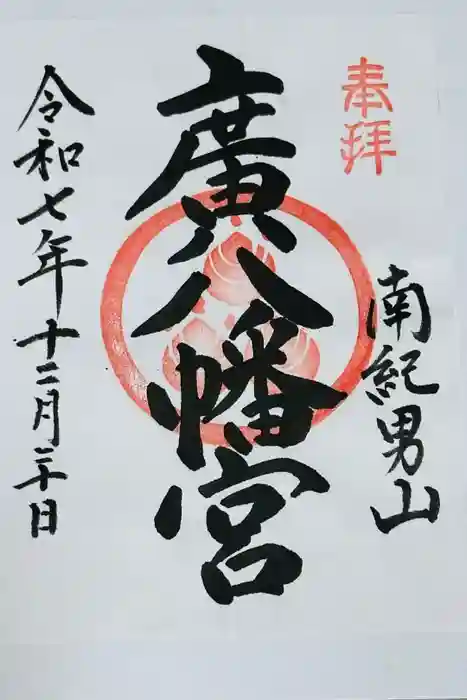 奉拝
南紀男山
廣八幡宮
令和七年十二月三十日